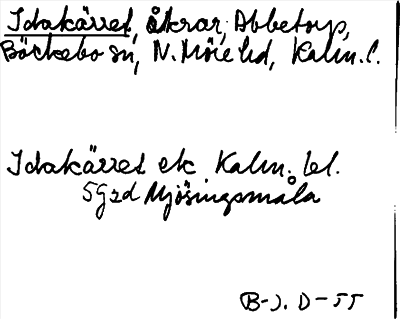 Idakärret, åkrar, Abbetorp,
Bäckebo sn, N. Möre hd, Kalm. l.
Idakärret ek Kalm. bl.
5G2d Mjösingsmåla
(B-J. D-55